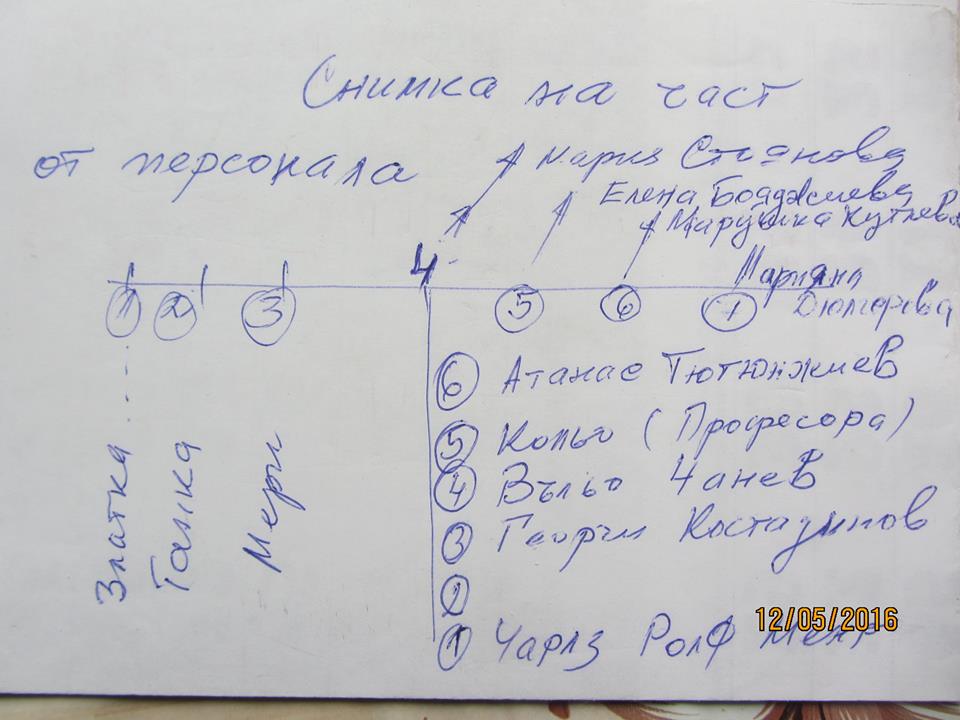 Снимка на част
от персонала
Мария Стоянова
Елена Бояджиева
Марушка Кутлева
4
Марияна
Дюлгерова
1 2 3 5 6 7
6 Атанас Тютюнжиев
5 Кольо (Професора)
4 Въльо Чанев
3 Георги Костадинов
2
1 Чарлз Ролф Меир
Златка...
Танка
Мери
12/05/2016